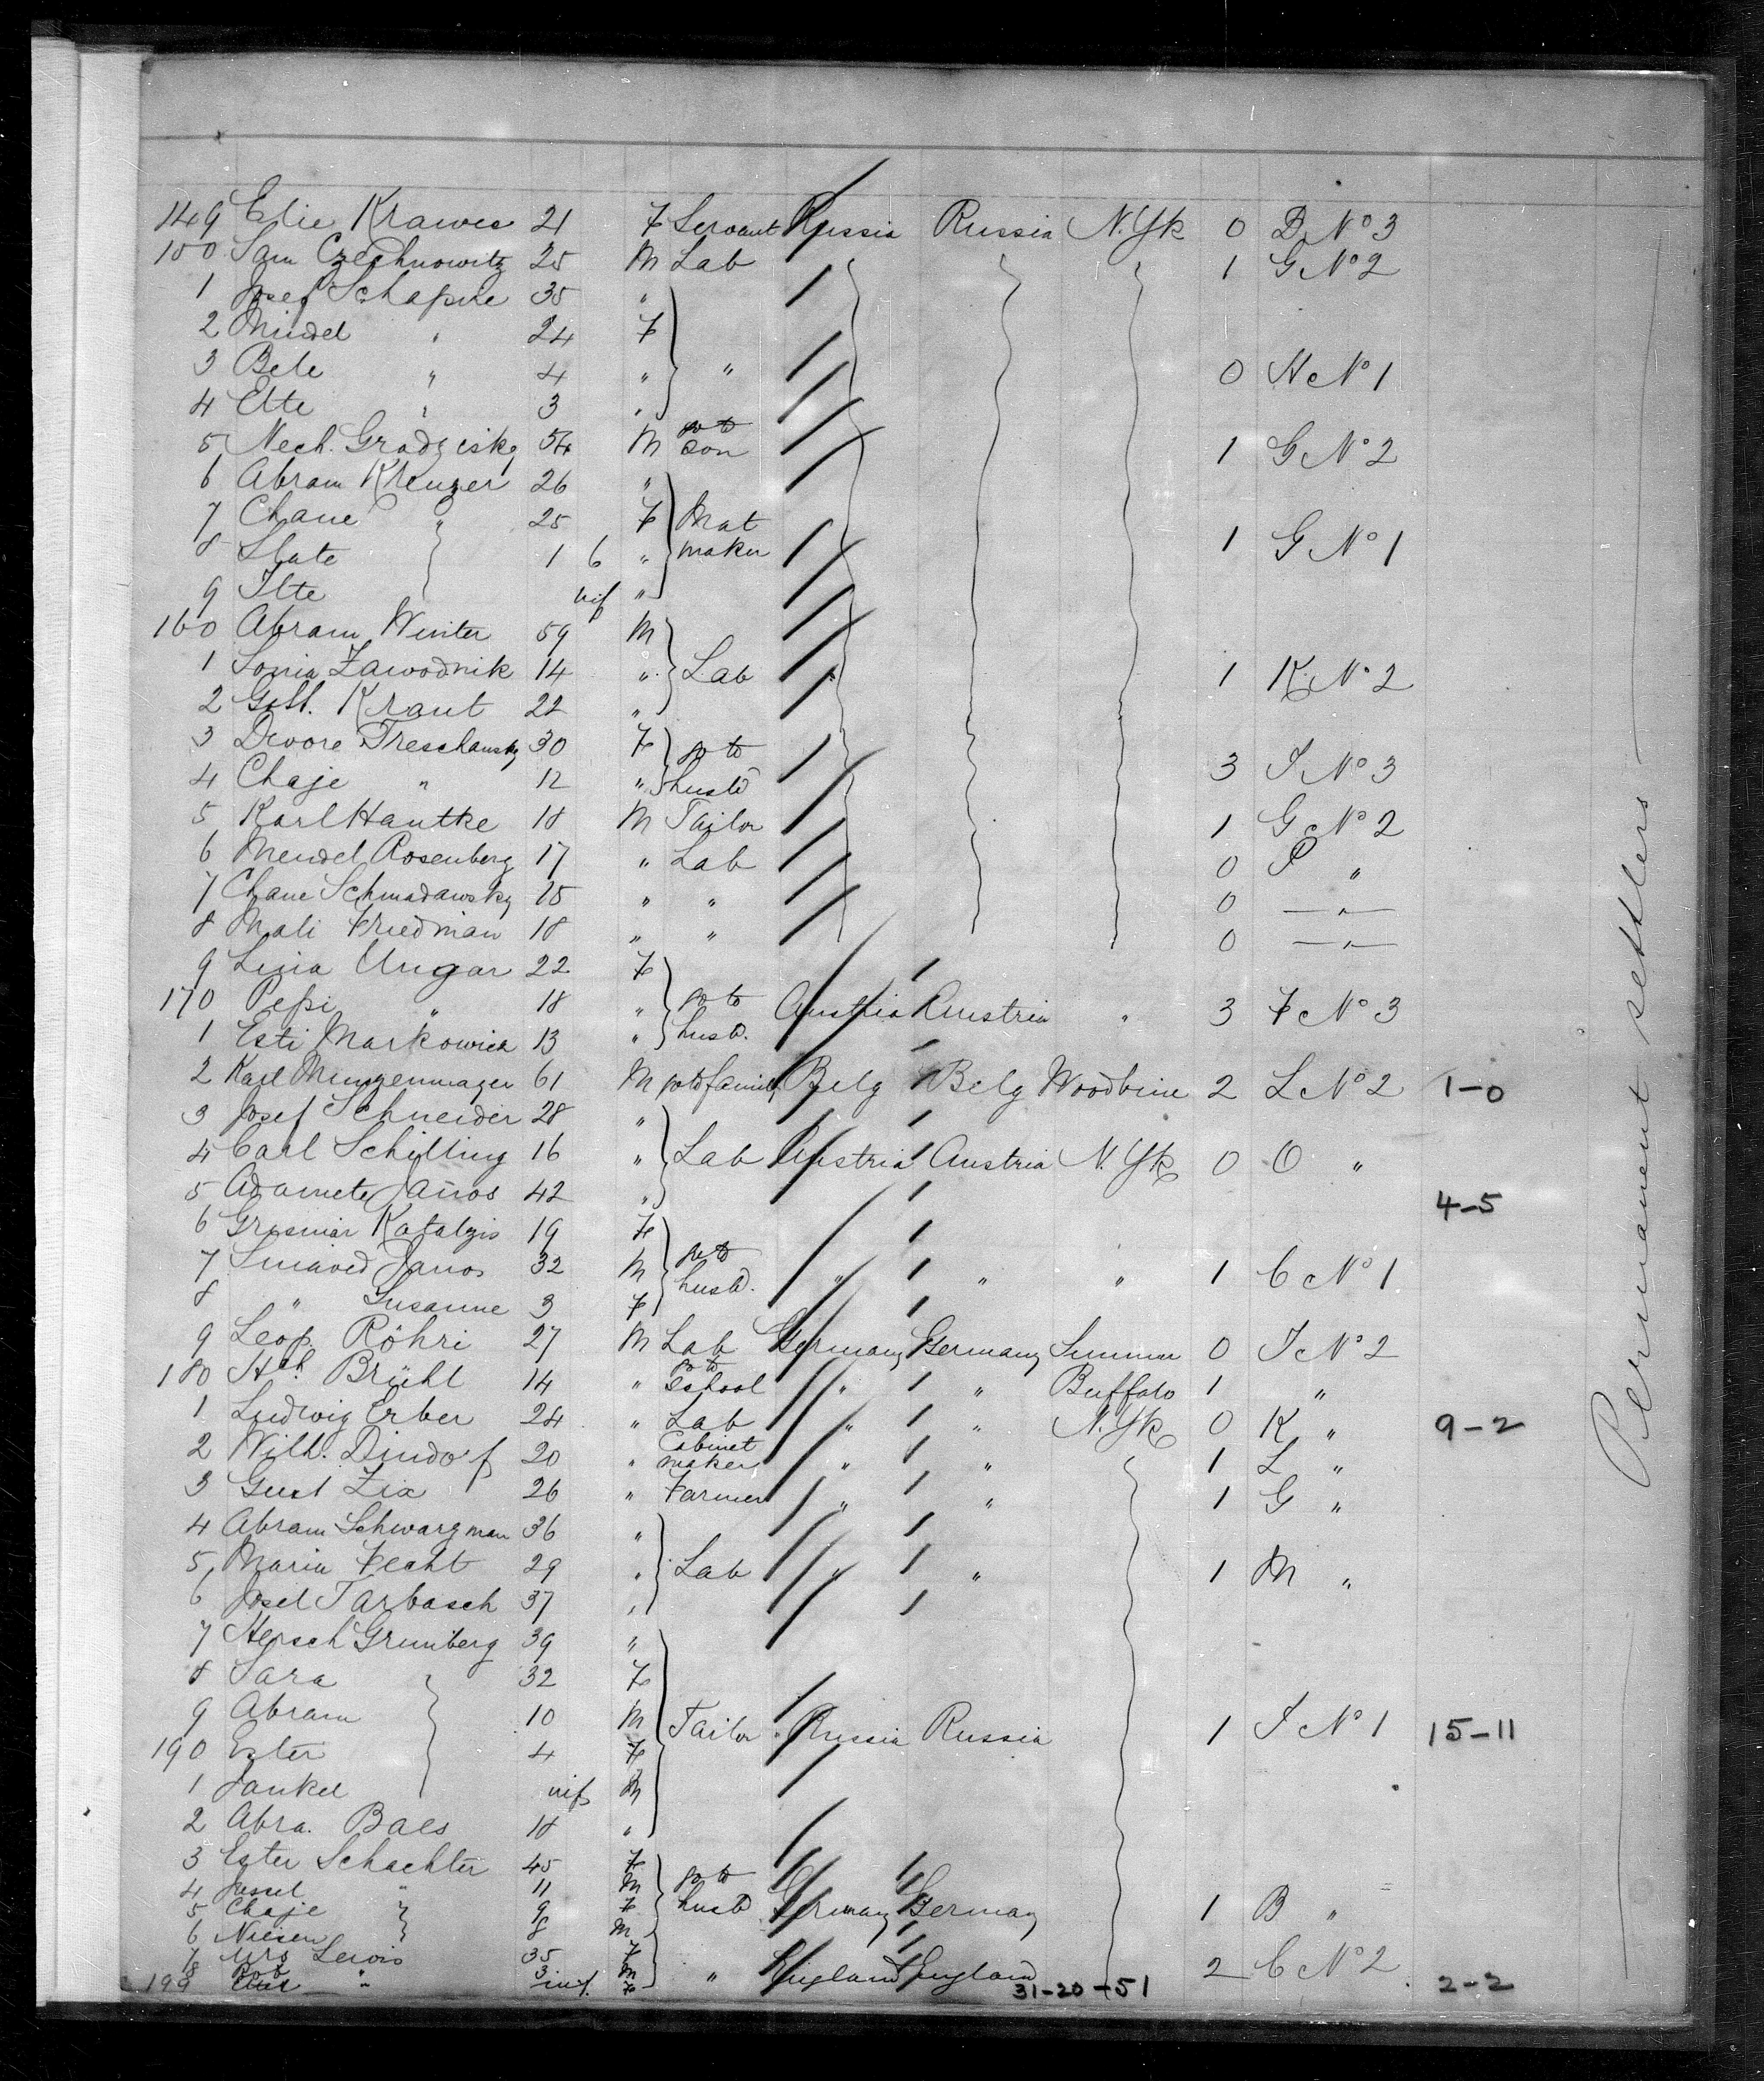 149 Elie Krawes 21 F Servant Russia Russia N.Yk 0 D No 3
150 Sam Czechnowitz 25 M Lab 1 G No 2
1 Josef Schapire 35 "
2 Mindel " 24 F
3 Bele " 4 " " 0 H No 1
4 Ette " 3 "
5 Nech. Gradziský 54 M go to son 1 G No 2
6 Abram Kreuzer 26 "
7 Chane " 25 F Mat
8 Slate 1 6 " maker 1 G No 1
9 Itte inf "
160 Abram Winter 59 M
1 Sonia Zawodnik 14 " Lab 1 K No 2
2 Gott. Kraut 22 "
3 Dwore Treschansky 30 F go to
4 Chaje " 12 " husbd 3 I No 3
5 Karl Hantke 18 M Tailor 1 G No 2
6 Mendel Rosenberg 17 " Lab 0 P "
7 Chane Schmadawsky 15 " " 0 — " —
8 Mali Friedman 18 " " 0 — " —
9 Lina Ungar 22 F
170 Pepi " 18 " go to Austria Austria " 3 F No 3
1 Esti Markowicz 13 " husbd.
2 Karl Mengenmager 61 M go to family Belg Belg Woodbine 2 L No 2 1-0
3 Josef Schneider 28 "
4 Carl Schilling 16 " Lab Austria Austria N.Yk 0 O "
5 Adamete Janos 42 " 4-5
6 Grasmar Katalzis 19 F
7 Smaved Janos 32 M go to husbd. " " " 1 C No 1
8 " Susanne 3 F
9 Leop. Röhri 27 M Lab Germany Germany Summer 0 I No 2
180 Hch. Brühl 14 " go to school " " Buffalo 1 "
1 Ludwig Erber 24 " Lab " " N.Yk 0 K " 9-2
2 Wilh. Dindorf 20 " Cabinet maker " " 1 L "
3 Gust Zix 26 " Farmer " " 1 G "
4 Abram Schwarzman 36 "
5 Maria Fecht 29 " Lab " " 1 M "
6 Josel Tarbasch 37 "
7 Hersch Grunberg 39 "
8 Sara 32 F
9 Abram 10 M Tailor Russia Russia 1 I No 1 15-11
190 Ester 4 F
1 Jankel inf M
2 Abra. Baes 18 "
3 Ester Schachter 45 F go to
4 Jossel " 11 M husbd Germany Germany 1 B "
5 Chaje " 9 F
6 Niesen 8 M
7 Mrs Lewis 35 F
8 Rob " 3 M " England England 2 C No 2
199 " inf. F 31-20-51 2-2
Permanent settlers